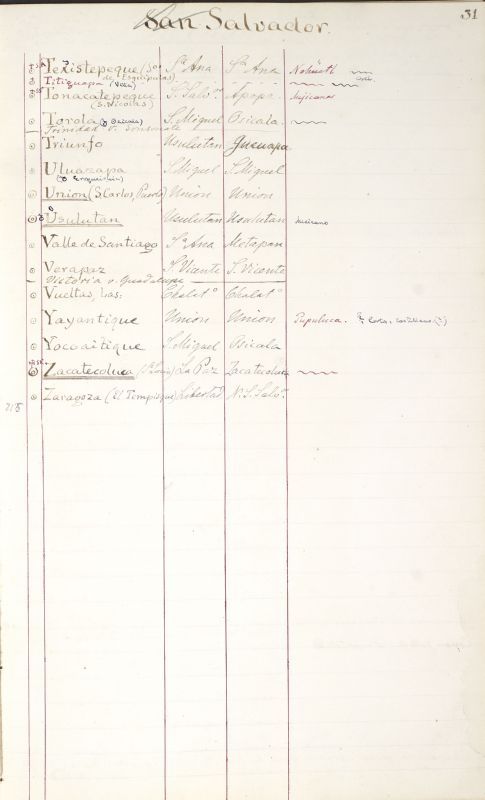 31
San Salvador.
Texistepeque Sta Ana Sta Ana Nahuatl
de Esquipulas)
Titiguapa
Tonacatepeque S. Salvr. Apopa Mejicano
(S. Nicolas)
Torola S. Miguel Osicala
Trinidad v. Sonsonate
Triunfo Usulutan Jucuapa
Uluazapa S. Miguel S. Miguel
Union (S. Carlos, Puerto) Union Union
Usulutan Usulutan Usulutan
Valle de Santiago Sta Ana Metapan
Verapaz S. Vicente S. Vicente
Victoria v. Guadalupe
Vueltas, las: Chalato Chalato
Yayantique Union Union Pupuluca.
Yocoaitique S. Miguel Osicala
Zacatecoluca La Paz Zacatecoluca
Zaragoza (El Tempisque) Libertad N. S. Salvr.